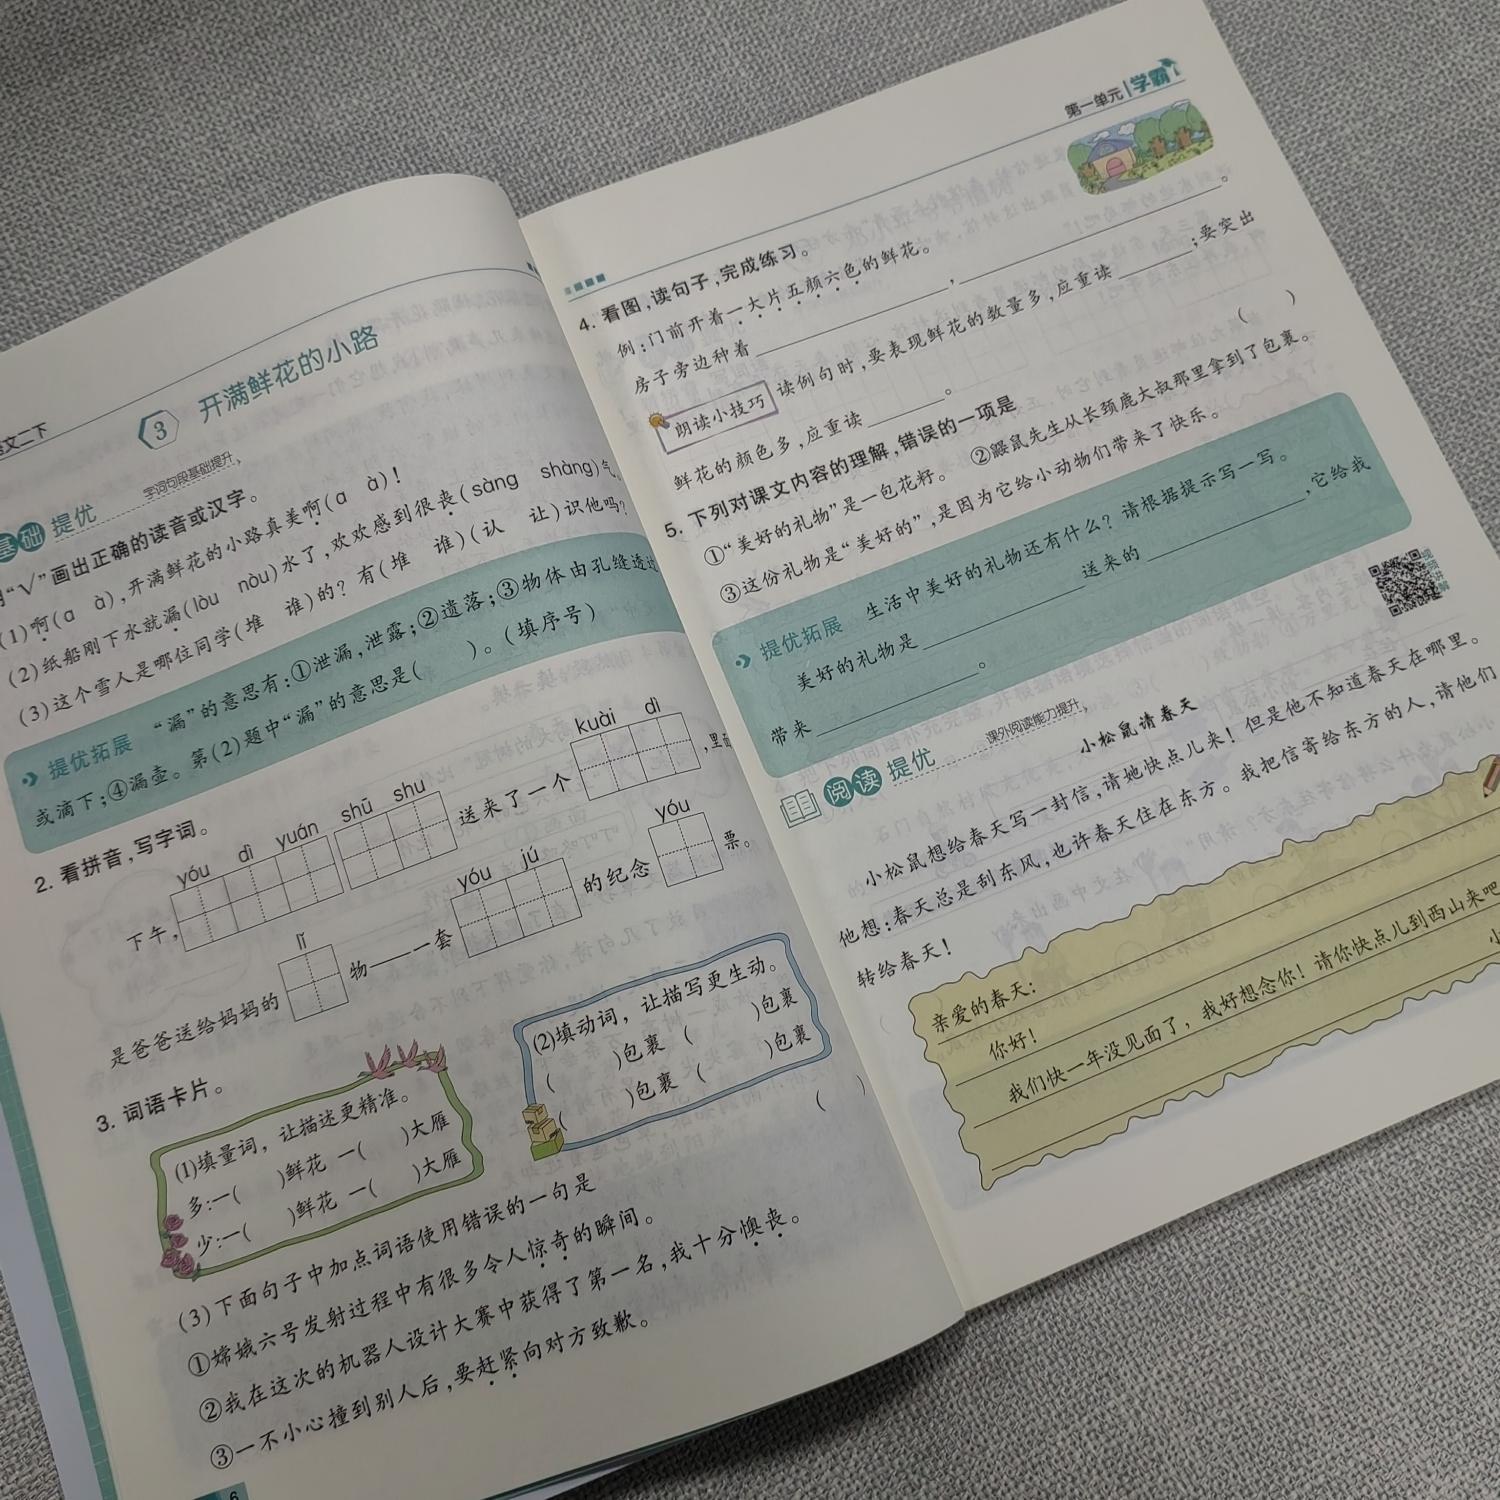 语文二下
3 开满鲜花的小路
基础 提优 字词句段基础提升
“√”画出正确的读音或汉字。
(1)啊(ɑ à),开满鲜花的小路真美啊(ɑ à)!
(2)纸船刚下水就漏(lòu nòu)水了,欢欢感到很丧(sàng shàng)气。
(3)这个雪人是哪位同学(堆 谁)的?有(堆 谁)(认 让)识他吗?
提优拓展 “漏”的意思有:①泄漏,泄露;②遗落;③物体由孔缝透过
或滴下;④漏壶。第(2)题中“漏”的意思是( )。(填序号)
2. 看拼音,写字词。
yóu dì yuán shū shu kuài dì
下午, 送来了一个 ,里面
lǐ yóu jú yóu
是爸爸送给妈妈的 物——一套 的纪念 票。
3. 词语卡片。
(1)填量词,让描述更精准。
多:一( )鲜花 一( )大雁
少:一( )鲜花 一( )大雁
(2)填动词,让描写更生动。
( )包裹 ( )包裹
( )包裹 ( )包裹
(3)下面句子中加点词语使用错误的一句是 ( )
①嫦娥六号发射过程中有很多令人惊奇的瞬间。
②我在这次的机器人设计大赛中获得了第一名,我十分懊丧。
③一不小心撞到别人后,要赶紧向对方致歉。
6
第一单元 学霸
4. 看图,读句子,完成练习。
例:门前开着一大片五颜六色的鲜花。
房子旁边种着 , 。
朗读小技巧 读例句时,要表现鲜花的数量多,应重读 ;要突出
鲜花的颜色多,应重读 。
5. 下列对课文内容的理解,错误的一项是 ( )
①“美好的礼物”是一包花籽。 ②鼹鼠先生从长颈鹿大叔那里拿到了包裹。
③这份礼物是“美好的”,是因为它给小动物们带来了快乐。
提优拓展 生活中美好的礼物还有什么?请根据提示写一写。
美好的礼物是 送来的 ,它给我
带来 。
视频讲解
阅读 提优 课外阅读能力提升
小松鼠请春天
小松鼠想给春天写一封信,请她快点儿来!但是他不知道春天在哪里。
他想:春天总是刮东风,也许春天住在东方。我把信寄给东方的人,请他们
转给春天!
亲爱的春天:
你好!
我们快一年没见面了,我好想念你!请你快点儿到西山来吧
小